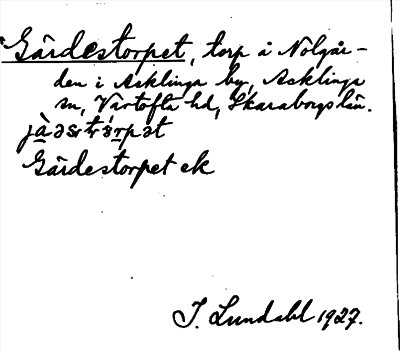 Gärdestorpet, torp å Nolgår-
den i Acklinga by, Acklinga
sn, Vartofta hd, Skaraborgs län.
Gärdestorpet ek
J. Lundahl 1927.